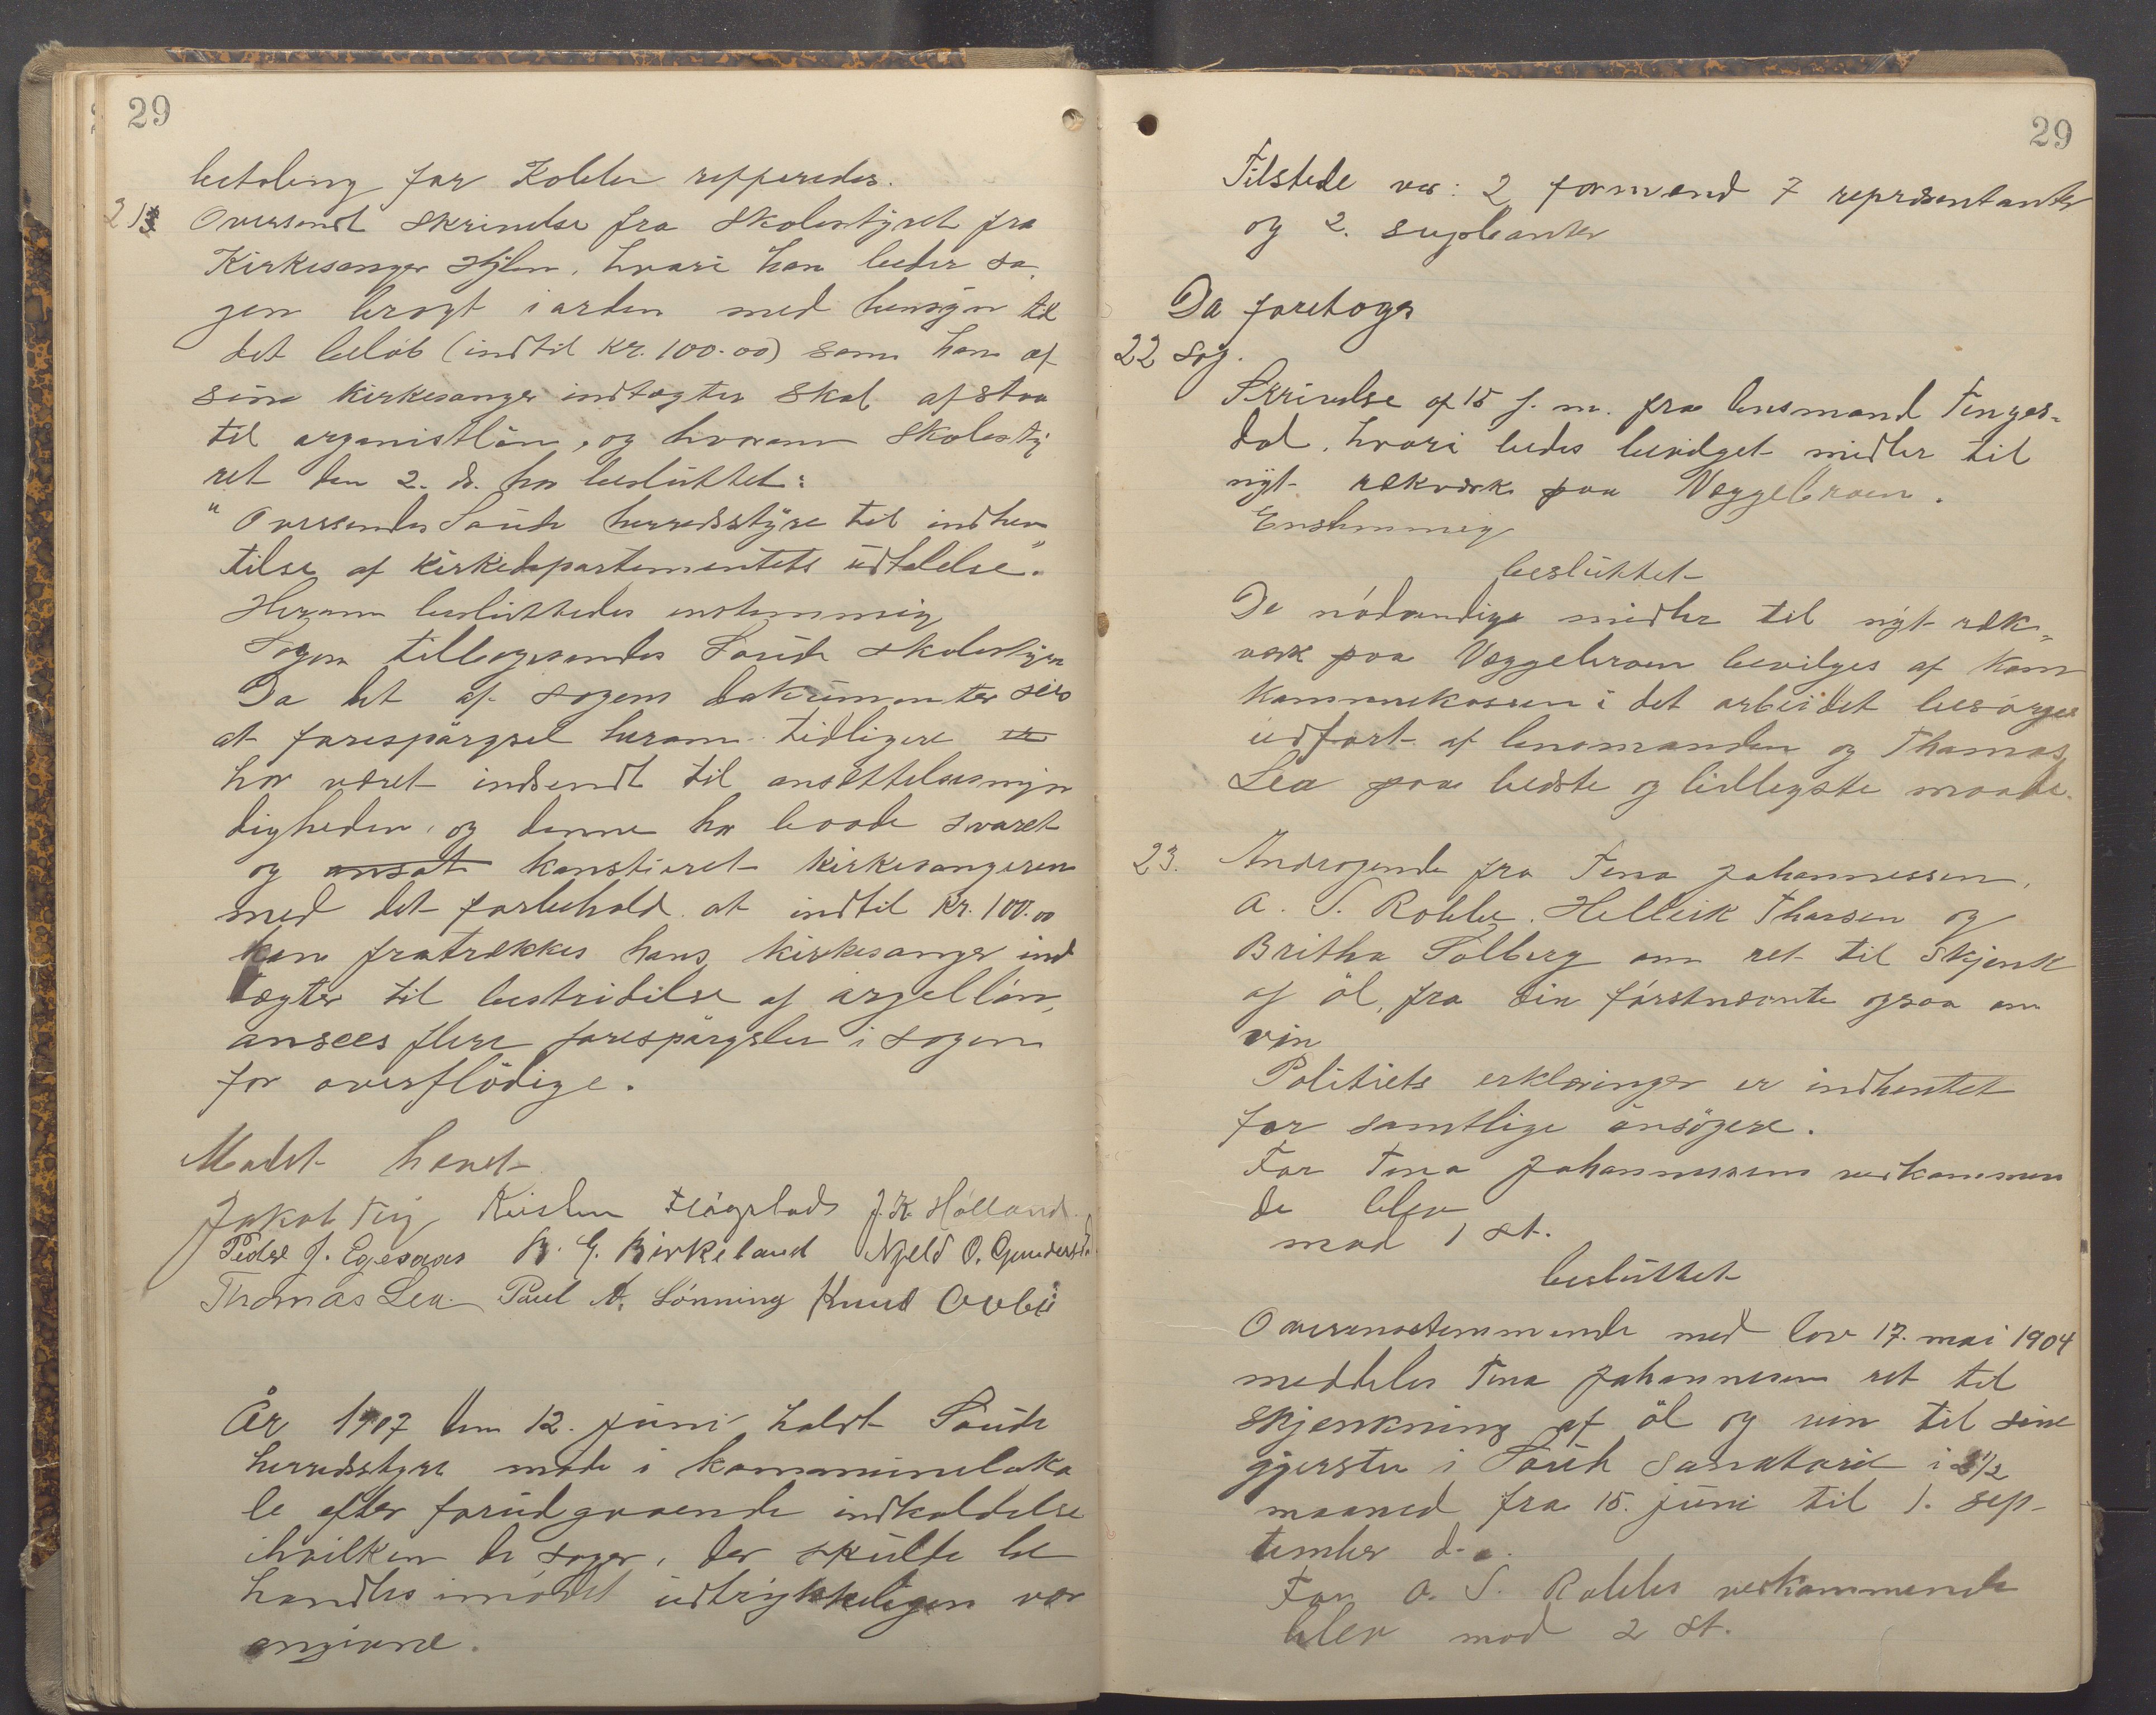 29
betaling for Koblen refperedes.
21 Oversendt skrivelse fra Skolestyret fra
Kirkesanger Hylen, hvori han beder sa
gen bragt iorden med hensyn til
det beløb (indtil kr. 100.00) som han af
sine kirkesanger indtægter skal afstaa
til organistløn, og hvorom Skolesty
ret den 2. ds. har besluttet:
"Oversendes Saude herredsstyre til indhen
tilse af Kirkedepartementets udtalelse".
Herom besluttedes enstemmig
Sagen tilbagesendes Saude skolestyre
Da det af sagens dokumenter sees
at forespørgsel herom tidligere er
har været indsendt til ansættelsesmyn
digheden, og denne har baade svaret
og ansat konstieret kirkesangeren
med det forbehold at indtil kr. 100.00
kan fratrækkes hans kirkesanger ind
tægter til bestridelse af orgelløn,
ansees flere forespørgsler i sagen
for overflødige.
Mødet hevet
Jakob Fiig Kristen Fløgstads J. K. Hølland
Peder J. Egesaas B. G. Birkeland Njeld O. Gundersd.
Thomas Lea. Paul A. Lønning Knud Ovlei
År 1907 den 12. juni holdt Saude
herredsstyre møde i kommunneloka
le efter forudgaaende indkaldelse
ihvilken de sager, der skulde be
handles imødet udtrykkeligen var
angivne.
29
Tilstede var: 2 formænd 7 repræsentanter
og 2. supleanter
Da foretoges
22 sag.
Skrivelse af 15 f. m. fra lensmand Tenges-
dal, hvori bedes bevilget midler til
nyt rækværk paa Væggebroen.
Enstemmig
besluttet
De nødvendige midler til nyt ræk-
værk paa Væggebroen bevilges af Kom
kommunekassen i det arbeidet besørges
udført af lensmanden og Thomas
Lea paa bedste og billegste maade.
23. Andragende fra Tena Johannessen,
A. S. Robbe. Helleik Thorsen og
Britha Solberg om ret til Skjenk
af øl, fra den førstnævnte ogsaa om
vin
Politiets erklæringer er indhentet
for samtlige ansøgere.
For Tena Johannesens vedkommen
de blev
mod 1 st.
besluttet
Overensstemmende med lov 17. mai 1904
meddeles Tena Johannesen ret til
skjenkning af øl og vin til sine
gjerster i Saude Sanatorie i 2 1/2
maaned fra 15. juni til 1. sep-
tember d. a.
For A. S. Robbes vedkommende
blev mod 2 st.